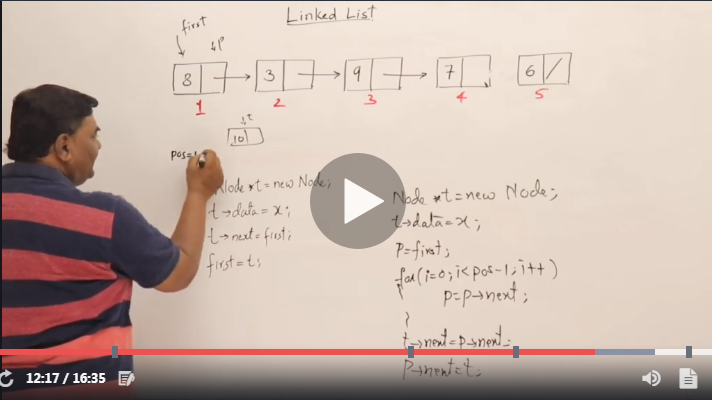 Linked List
first
p
8
3
9
7
6 /
1
2
3
4
5
t
10
pos=
Node *t=new Node;
t→data=x;
t→next=first;
first=t;
Node *t=new Node;
t→data=x;
P=first;
for(i=0;i<pos-1;i++)
{
p=p→next;
}
t→next=p→next;
p→next=t;
12:17 / 16:35